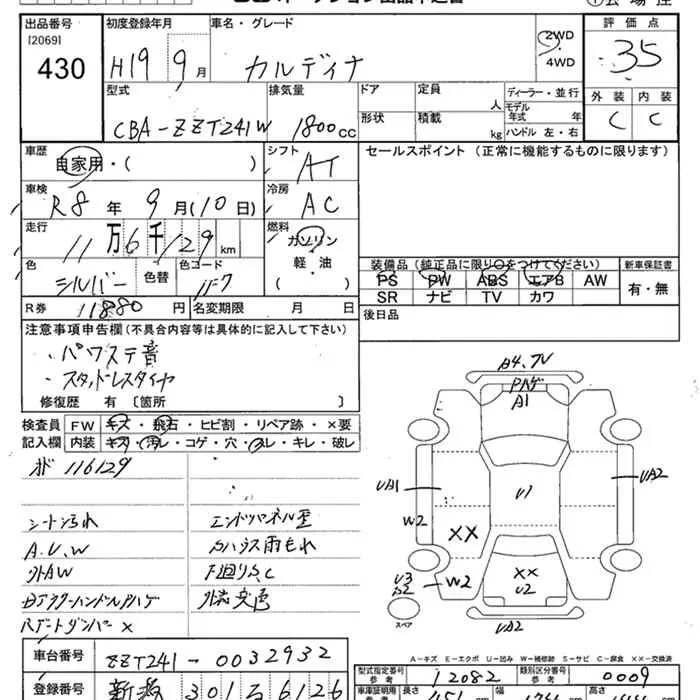 出品番号
[2069]
430
初度登録年月
H19 9月
車名・グレード
カルディナ
2WD
4WD
評価点
35
外装
内装
C
C
型式
CBA-ZZT241W
排気量
1800cc
ドア
形状
定員
人
積載
kg
ディーラー・並行
モデル年式 年
ハンドル 左・右
車歴
自家用・( )
シフト
AT
セールスポイント (正常に機能するものに限ります)
車検
R8年 9月(10日)
冷房
AC
走行
11万6千129km
燃料
ガソリン
軽・油
色
シルバー
色替
色コード
1F7
装備品(純正品に限り○をつけてください)
PS PW ABS エアB AW
SR ナビ TV カワ
新車保証書
有・無
R券
11880円
名変期限 月 日
後日品
注意事項申告欄(不具合内容等は具体的に記入して下さい)
・パワステ音
・スタッドレスタイヤ
修復歴 有 〔箇所 〕
検査員記入欄
FW キズ・飛石・ヒビ割・リペア跡・×要
内装 キズ・汚レ・コゲ・穴・スレ・キレ・破レ
116129
シート汚れ
A.U.W
外AW
Rゲートダンパー×
エンドパネル歪
Sハウス雨もれ
下廻りS.C
A4.TV
Pハゲ
A1
UA1
W2
XX
U1
UA2
U3
S2
W2
XX
U2
UA2
スペア
A-キズ E-エクボ U-凹み W-補修跡 S-サビ C-腐食 XX-交換済
車台番号
ZZT241-0032932
登録番号
301 6126
型式指定番号
参考
12082
類別区分番号
参考
0009
車車証明用
長さ
幅
高さ